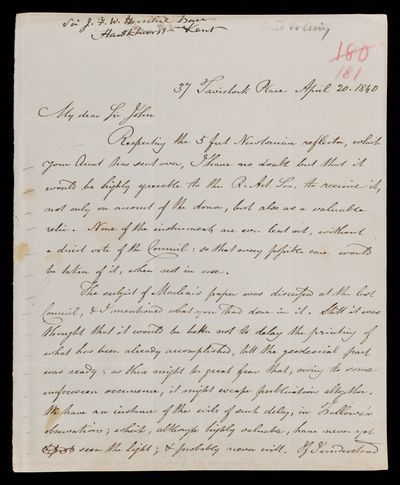 Sir J. F. W. Herschel Bart
Hawkhurst Kent
180
181
37 Tavistock Place April 20. 1840
My dear Sir John
Respecting the 5 feet Newtonian reflector, which
your Aunt has sent over, I have no doubt but that it
would be highly agreeable to the R. Ast. Soc. to receive it,
not only on account of the donor, but also as a valuable
relic. None of the instruments are ever lent out, without
a direct vote of the Council: so that every possible care would
be taken of it, when not in use.
The subject of Maclear's paper was discussed at the last
Council, & I mentioned what you had done in it. Still it was
thought that it would be better not to delay the printing of
what has been already accomplished, till the geodesical part
was ready: as there might be great fear that, owing to some
unforeseen occurrence, it might escape publication altogether.
We have an instance of the evils of such delay, in Fallows's
observations; which, altho highly valuable, have never yet
seen the light; & probably never will. If I understood